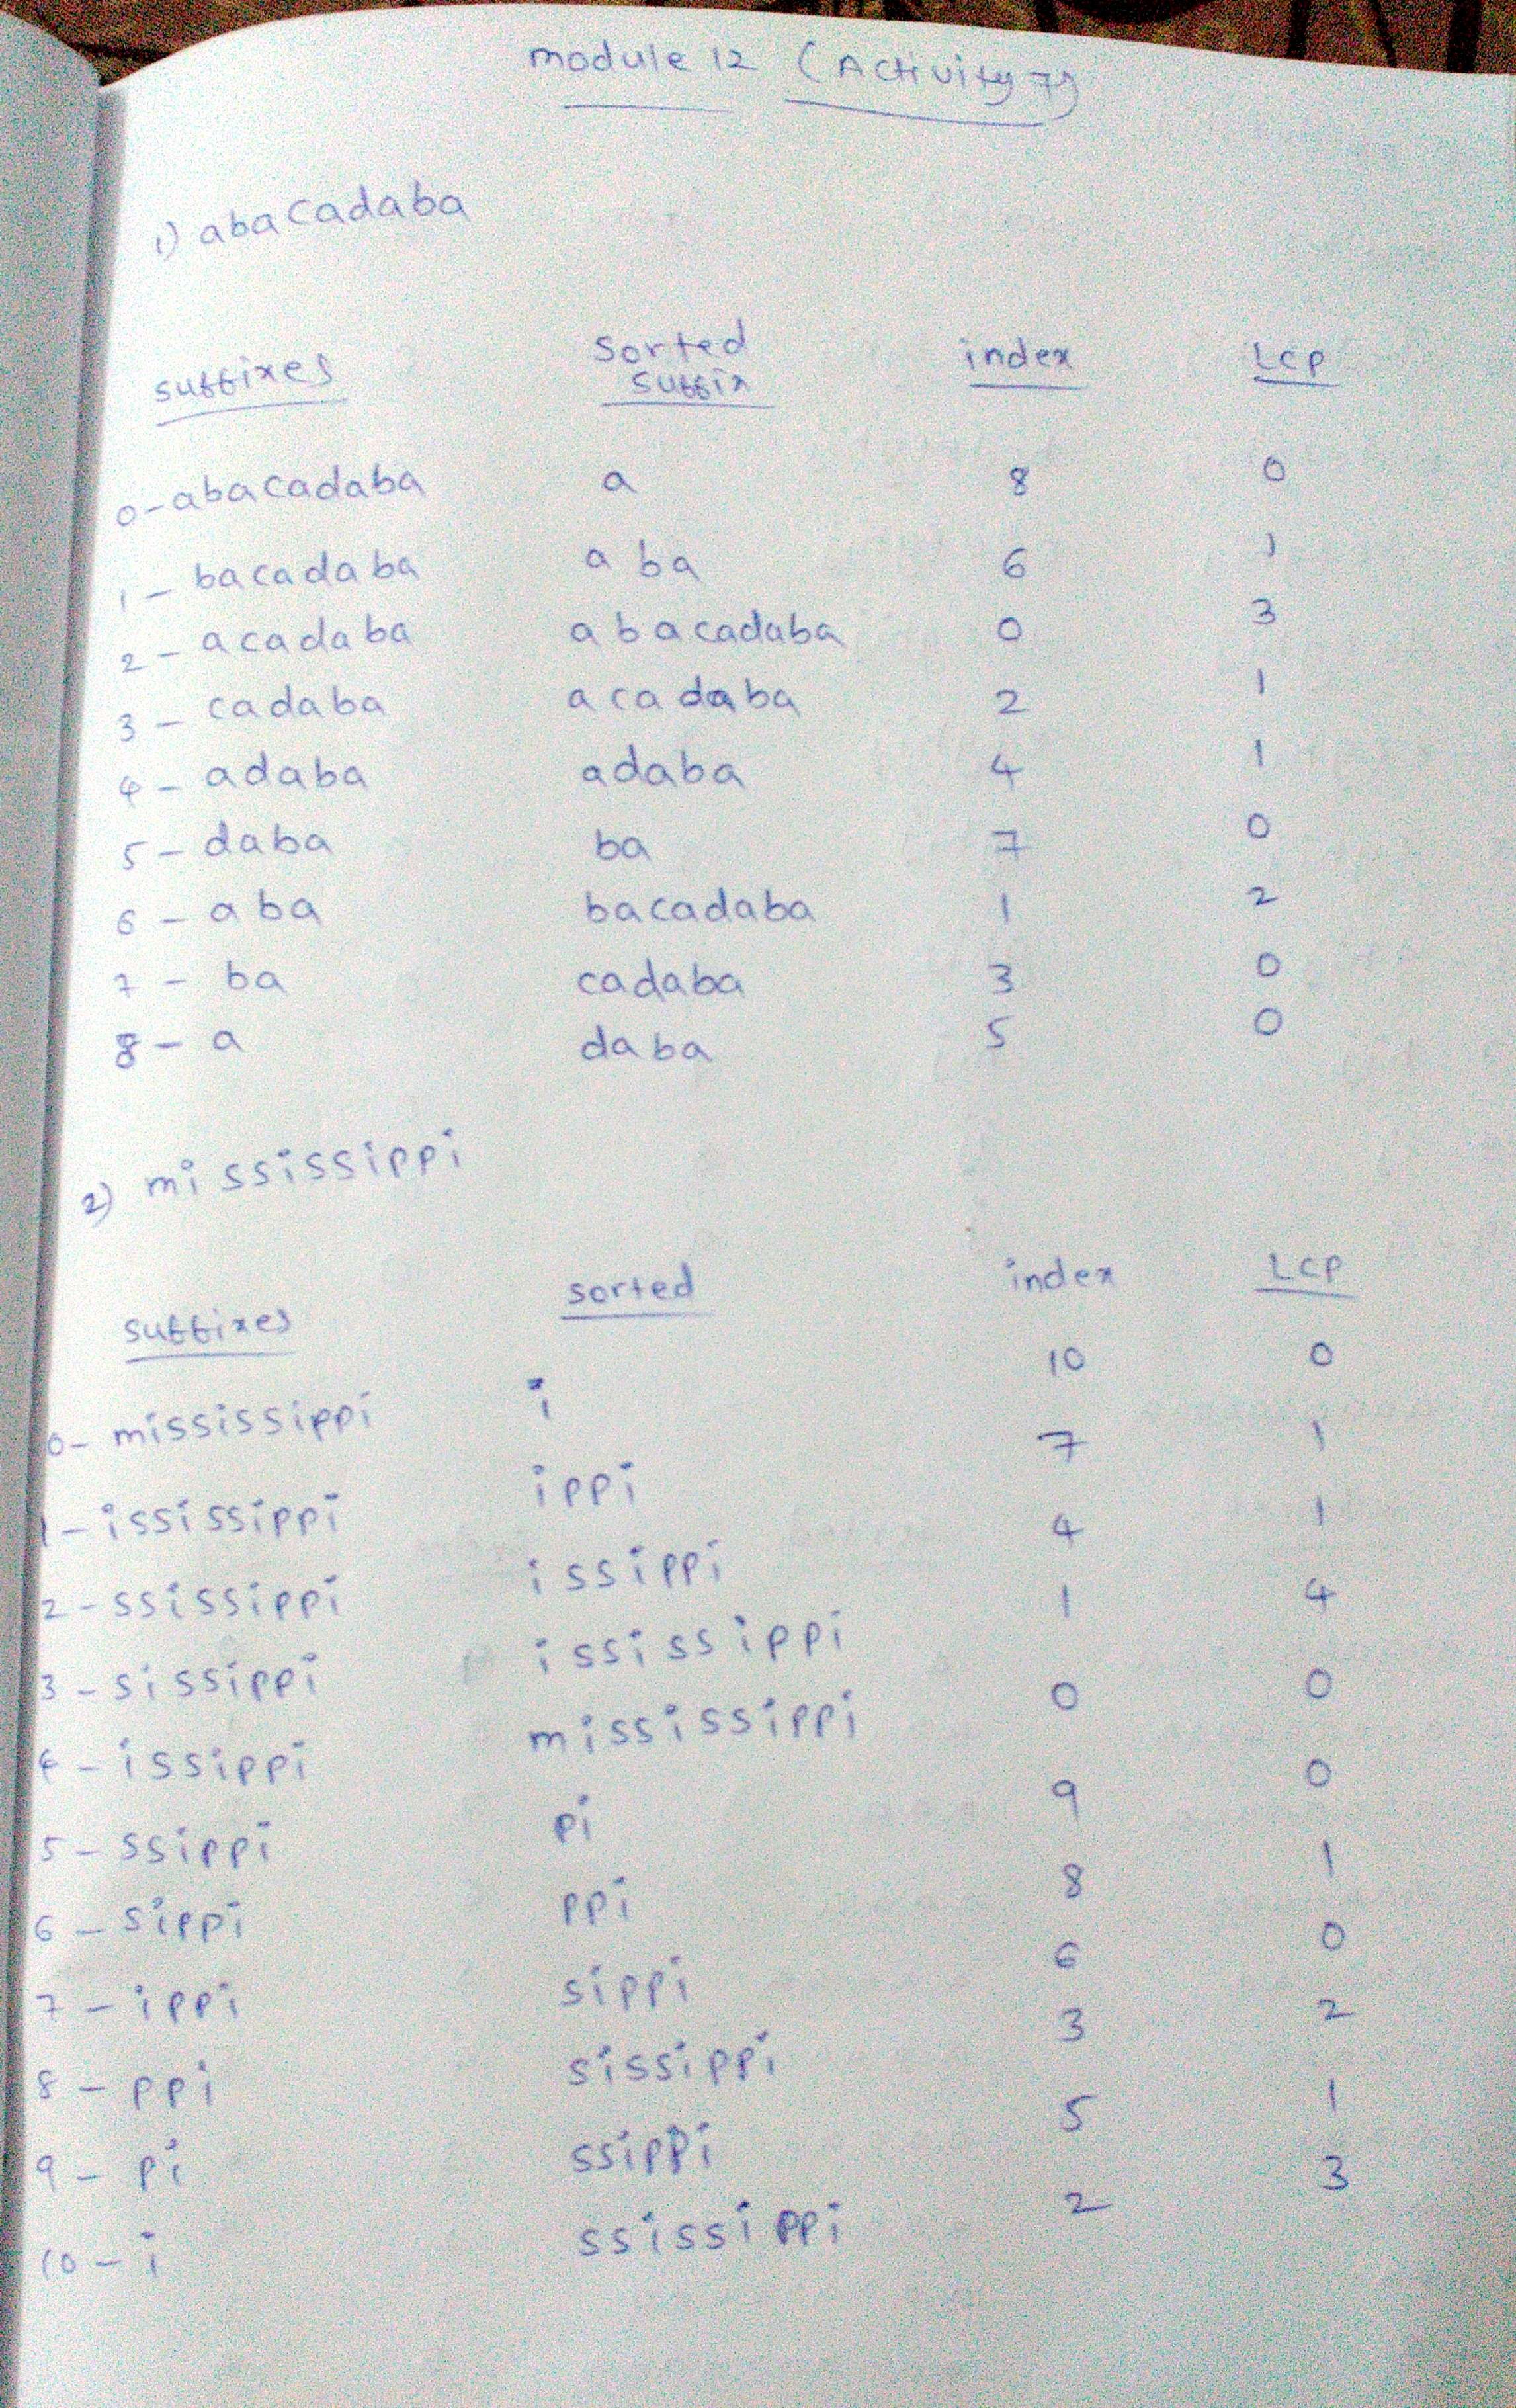 module 12 (Activity 7)
1) abacadaba
suffixes sorted suffix index Lcp
0-abacadaba a 8 0
1 - bacadaba aba 6 1
2 - acadaba abacadaba 0 3
3 - cadaba acadaba 2 1
4 - adaba adaba 4 1
5 - daba ba 7 0
6 - aba bacadaba 1 2
7 - ba cadaba 3 0
8 - a daba 5 0
2) mississippi
suffixes sorted index LCP
0- mississippi i 10 0
1-ississippi ippi 7 1
2-ssissippi issippi 4 1
3-sissippi ississippi 1 4
4-issippi mississippi 0 0
5-ssippi pi 9 0
6-sippi ppi 8 1
7-ippi sippi 6 0
8-ppi sissippi 3 2
9- pi ssippi 5 1
10-i ssissippi 2 3